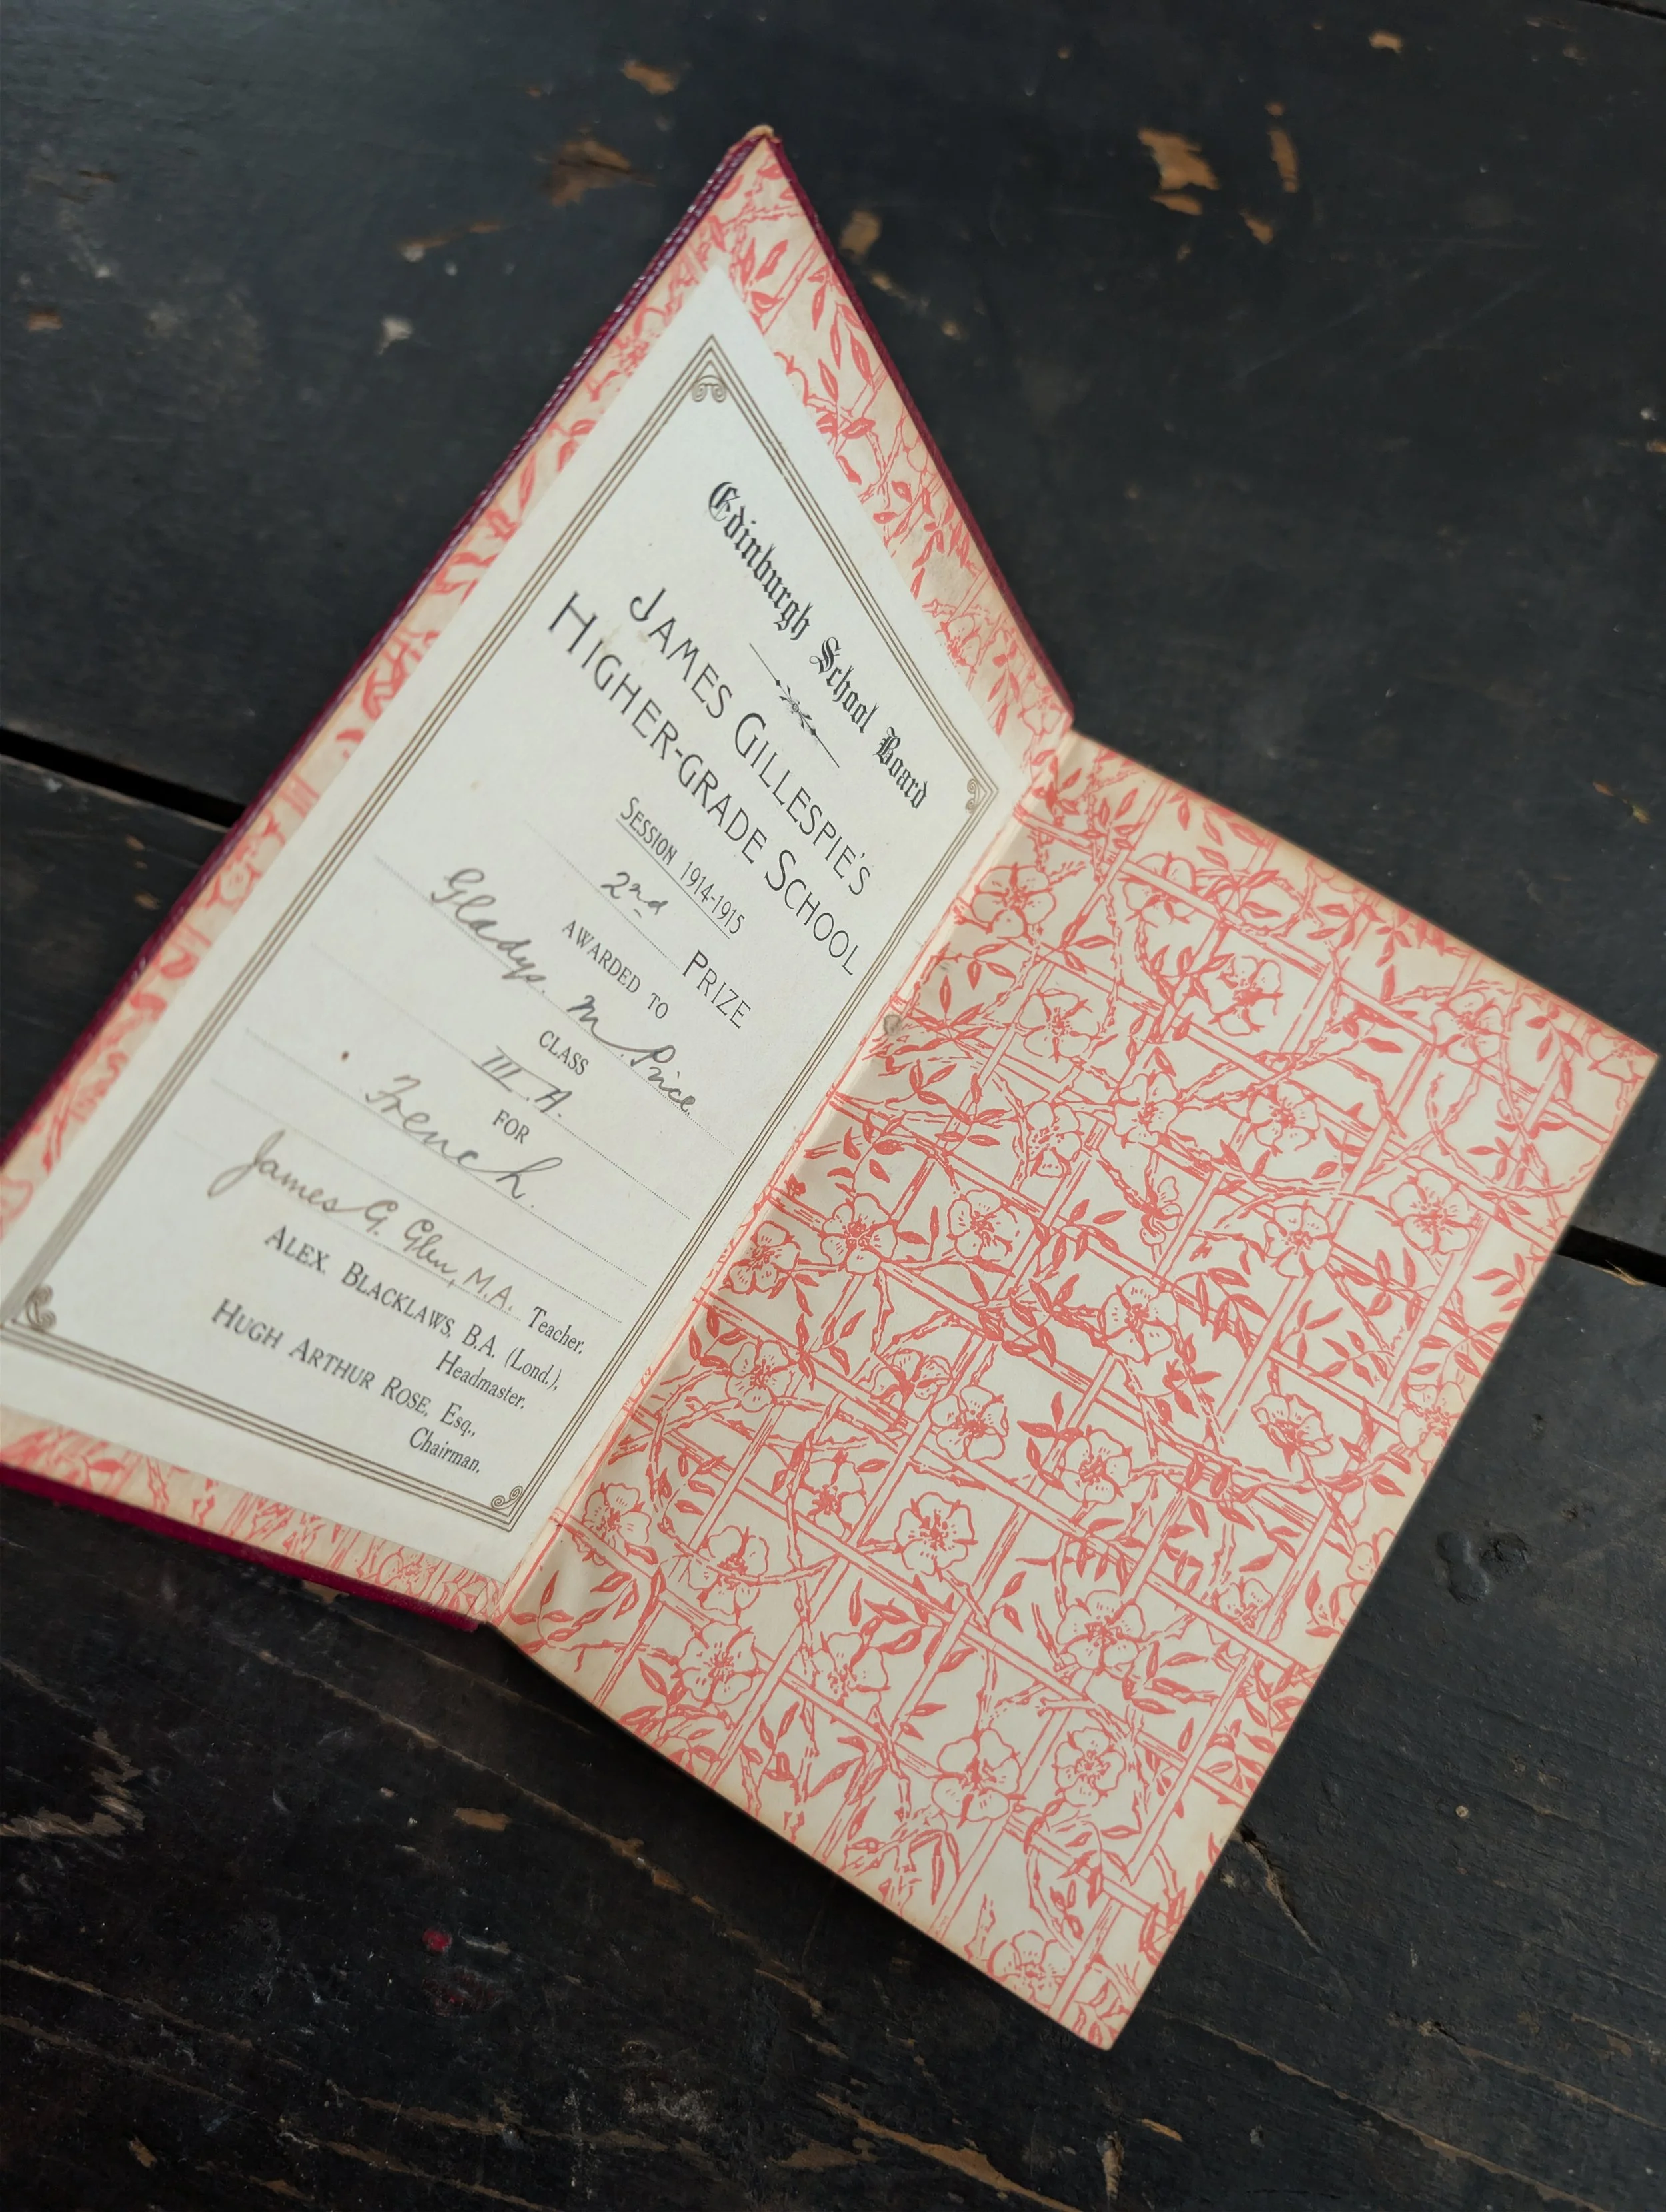 Edinburgh School Board
JAMES GILLESPIE'S
HIGHER-GRADE SCHOOL
SESSION 1914-1915
2nd PRIZE
AWARDED TO
Gladys. M. Price.
CLASS
III. A.
FOR
French.
James G. Glen, M.A. Teacher.
ALEX. BLACKLAWS, B.A. (Lond.),
Headmaster.
HUGH ARTHUR ROSE, Esq.,
Chairman.